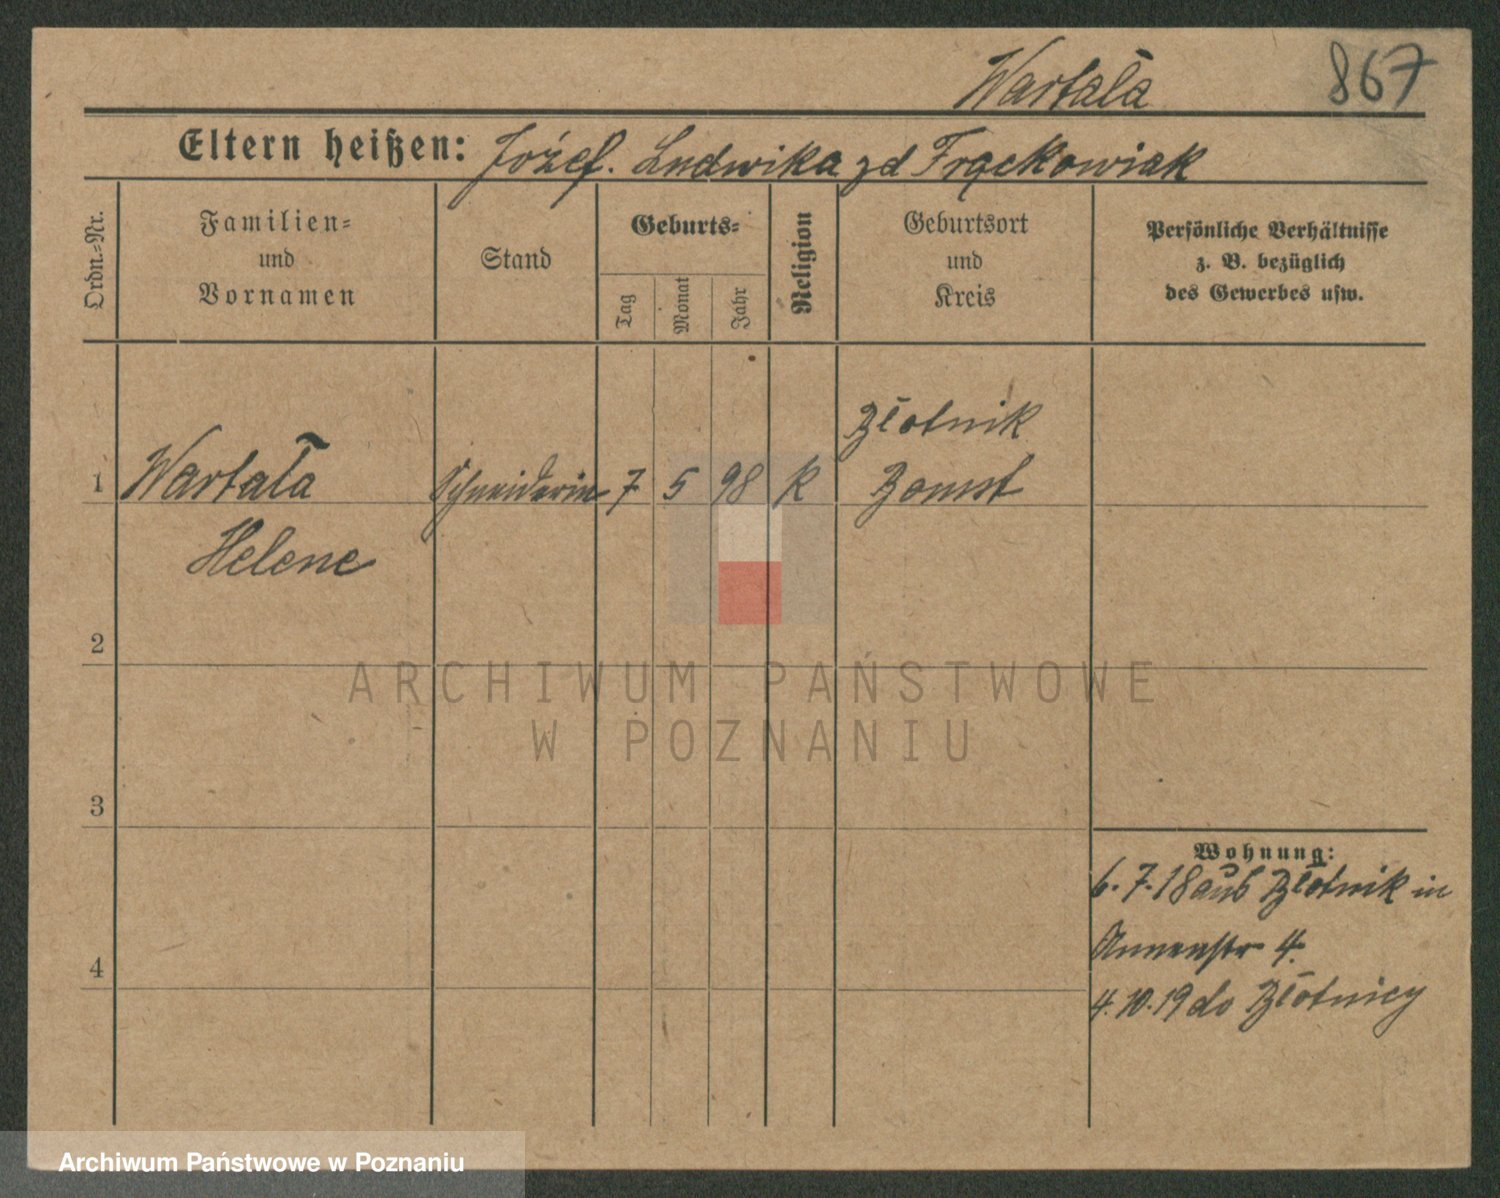 Wartała
867
Eltern heißen: Józef. Ludwika zd Frąckowiak
Ordn.-Nr.
Familien-
und
Vornamen
Stand
Geburts-
Tag
Monat
Jahr
Religion
Geburtsort
und
Kreis
Persönliche Verhältnisse
z. B. bezüglich
des Gewerbes usw.
Złotnik
1 Wartała Schneiderin 7 5 98 k Bomst
Helene
2
ARCHIWUM PAŃSTWOWE
W POZNANIU
3
Wohnung:
6.7.18 aus Złotnik in
Annenstr 4.
4
4.10.19 do Złotnicy
Archiwum Państwowe w Poznaniu